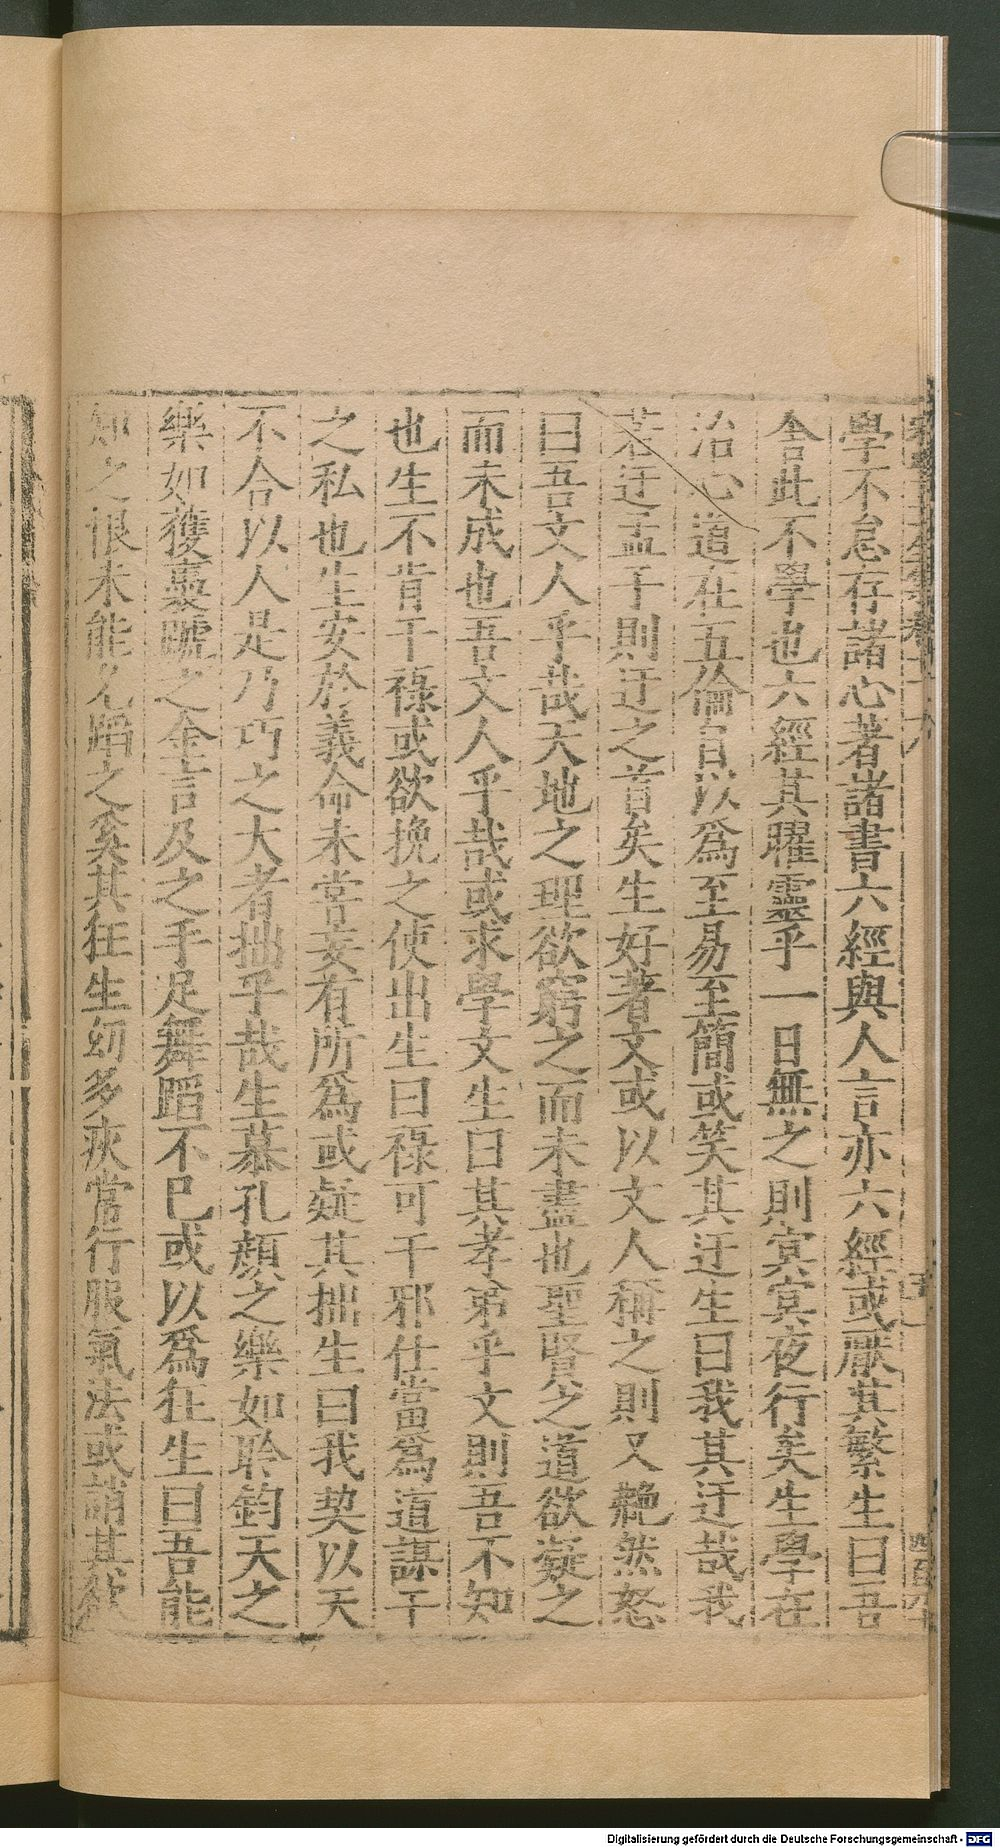 學不怠存諸心著諸書六經與人言亦六經或厭其繁生曰吾
舍此不學也六經其曜靈乎一日無之則冥冥夜行矣生學在
治心道在五倫自以爲至易至簡或笑其迂生曰我其迂哉我
若迂孟子則迂之首矣生好著文或以文人稱之則又艴然怒
曰吾文人乎哉天地之理欲窮之而未盡也聖賢之道欲凝之
而未成也吾文人乎哉或求學文生曰其孝弟乎文則吾不知
也生不肯干祿或欲挽之使出生曰祿可干邪仕當爲道謀干
之私也生安於義命未嘗妄有所爲或疑其拙生曰我契以天
不合以人是乃巧之大者拙乎哉生慕孔顏之樂如聆鈞天之
樂如獲裹蹏之金言及之手足舞蹈不巳或以爲狂生曰吾能
知之恨未能允蹈之奚其狂生幼多疾當行服氣法或誚其欲
四百八十
Digitalisierung gefördert durch die Deutsche Forschungsgemeinschaft - DFG